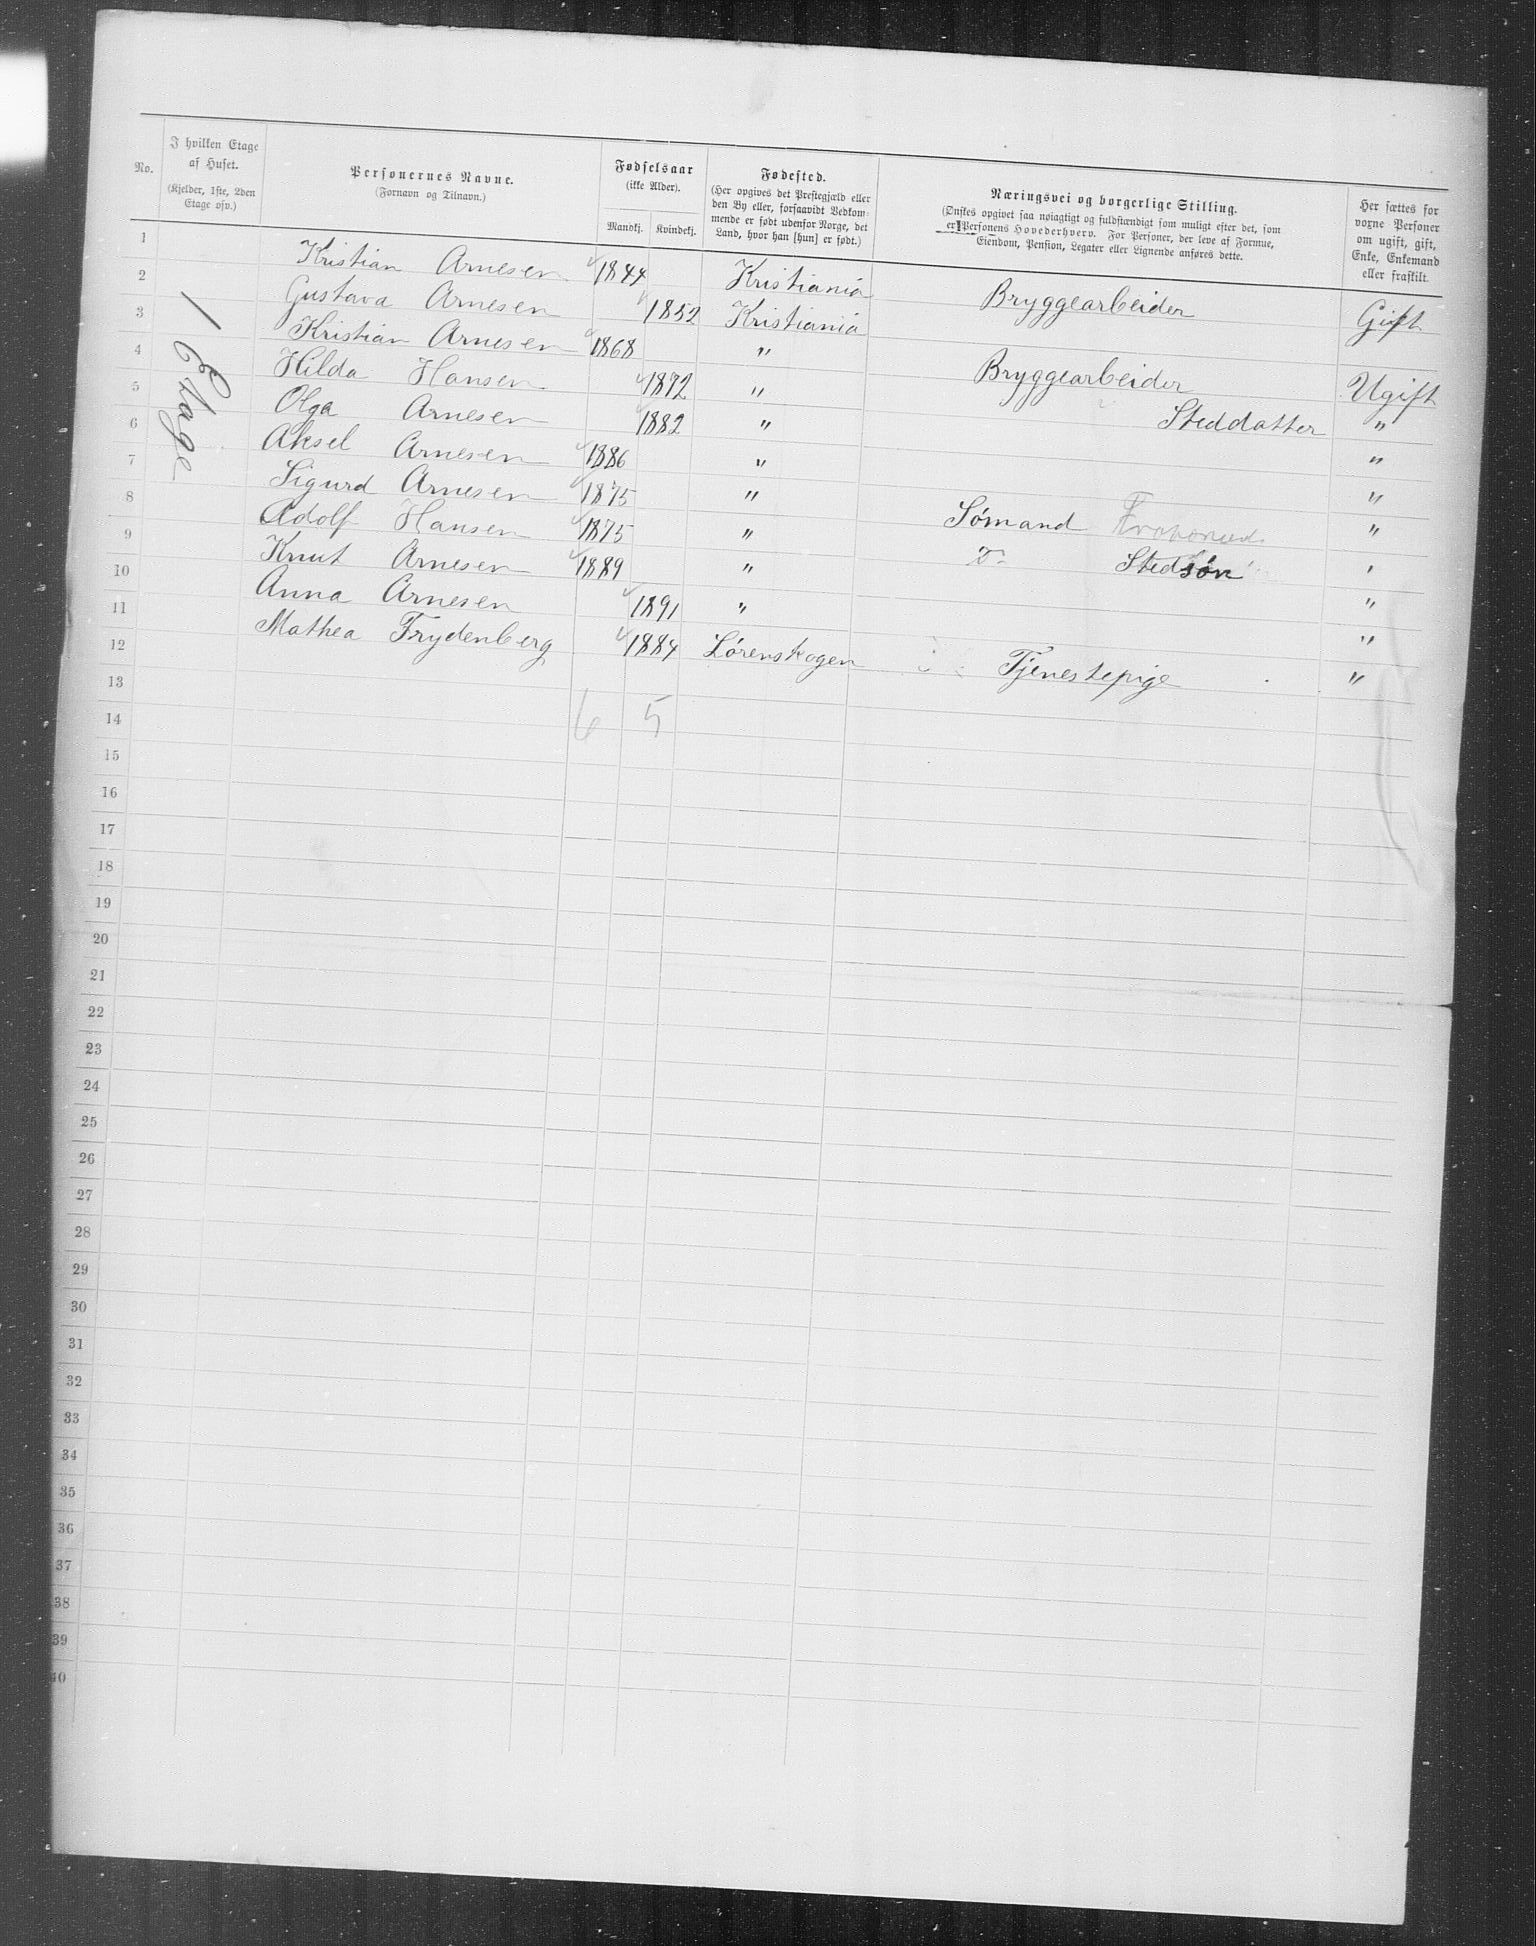 No.
I hvilken Etage
af Huset.
(Kjelder, 1ste, 2den
Etage osv.)
Personernes Navne.
(Fornavn og Tilnavn.)
Fødselsaar
(ikke Alder).
Mandkj. Kvindekj.
Fødested.
(Her opgives det Prestegjæld eller
den By eller, forsaavidt Vedkom-
mende er født udenfor Norge, det
Land, hvor han [hun] er født.)
Næringsvei og borgerlige Stilling.
(Ønskes opgivet saa nøiagtigt og fuldstændigt som muligt efter det, som
er Personens Hovederhverv. For Personer, der leve af Formue,
Eiendom, Pension, Legater eller Lignende anføres dette.
Her sættes for
voxne Personer
om ugift, gift,
Enke, Enkemand
eller fraskilt.
1 Etage
1 Kristian Arnesen 1844 Kristiania Bryggearbeider Gift
2 Gustava Arnesen 1852 Kristiania
3 Kristian Arnesen 1868 " Bryggearbeider Ugift
4 Hilda Hansen 1872 " Steddatter "
5 Olga Arnesen 1882 " "
6 Aksel Arnesen 1886 " "
7 Sigurd Arnesen 1875 " Sømand "
8 Adolf Hansen 1875 " Stedsøn "
9 Knut Arnesen 1889 " "
10 Anna Arnesen 1891 " "
11 Mathea Frydenberg 1884 Lørenskogen Tjenestepige "
12
13
6 5
14
15
16
17
18
19
20
21
22
23
24
25
26
27
28
29
30
31
32
33
34
35
36
37
38
39
40